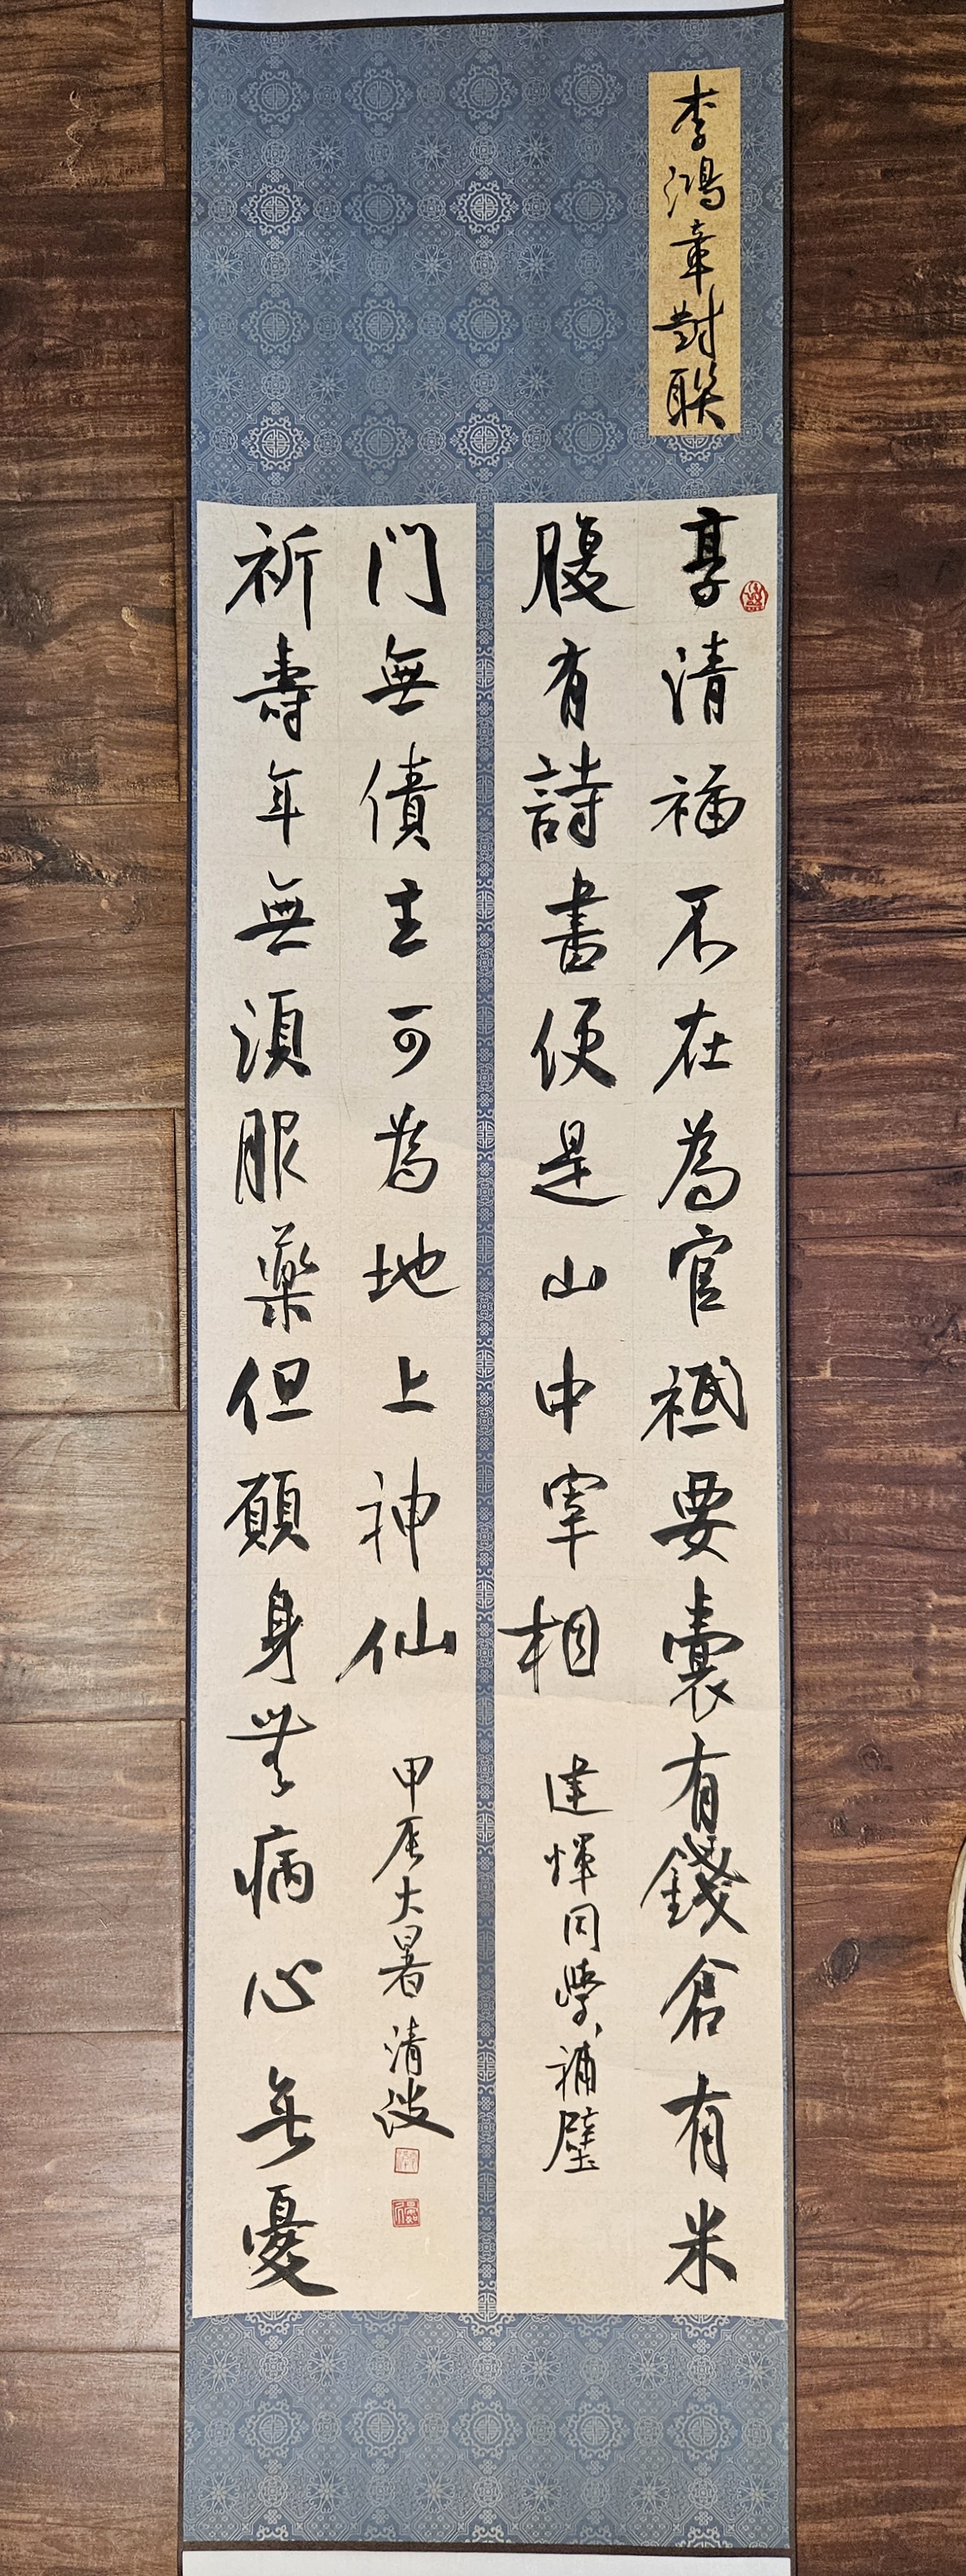 李鴻章對聯
享清福不在為官祗要囊有錢倉有米
腹有詩書便是山中宰相
同學補壁
祈壽年無須服藥但願身無病心無憂
门無債主可為地上神仙
甲辰大暑 清波